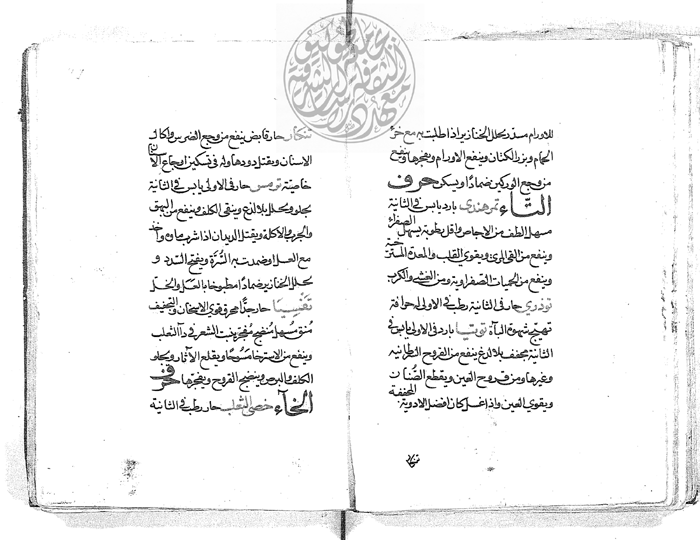 للاورام مسدد يحلل الخنازير اذا طليت به مع خرؤ
الحمام وبزر الكتان وينفع الاورام ويفجرها وينفع
من وجع الوركين ضمادا ويسكن حرف
التاء تمر هندي بارد يابس في الثانية
مسهل الطف من الاجاص واقل رطوبة يسهل الصفرا
وينفع من القي المري ويقوي القلب والمعدة المسترخية
وينفع من الحميات الصفراوية ومن الغشي والكرب
توذري حار في الثانية رطب في الاولى له حرافة
تهيج شهوة الباه توتيا بارد في الاولى يابس في
الثانية يجفف بلا لدغ ينفع من القروح السرطانية
وغيرها ومن قروح العين ويقطع الصنان
ويقوي العين واذا غسل كان افضل الادوية المجففة
تنكار
تنكار حار قابض ينفع من وجع الضرس واكال
الاسنان ويقتل دودها وله في تسكين اوجاع الاسنان
خاصية ترمس حار في الاولى يابس في الثانية
يجلو ويحلل بلا لدغ وينقي الكلف وينفع من البهق
والجرب والاكلة ويقتل الديدان اذا شرب
مع العسل او ضمدت به السرة ويفتح السدد و
يحلل الخنازير ضمادا مطبوخا بالعسل والخل
تفسيا حار جدا محرق قوي الاسخان والتجفيف
مسهل منضج مفجر ينبت الشعر في داء الثعلب
وينفع من الاسترخا مسوحا ويقلع الآثار ويجلو
الكلف والبرص وينضج القروح ويفجرها حرف
الخاء خصى الثعلب حار رطب في الثانية